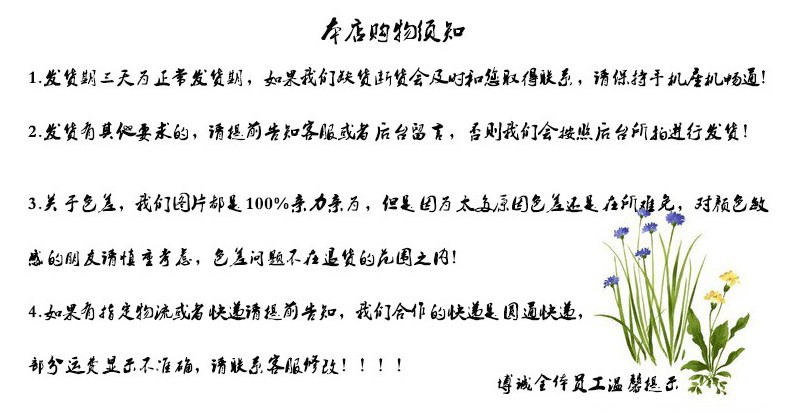 本店购物须知
1.发货期三天为正常发货期，如果我们缺货断货会及时和您取得联系，请保持手机座机畅通!
2.发货有其他要求的，请提前告知客服或者后台留言，否则我们会按照后台所拍进行发货!
3.关于色差，我们图片都是100%亲力亲为，但是因为太多原因色差还是在所难免，对颜色敏
感的朋友请慎重考虑，色差问题不在退货的范围之内!
4.如果有指定物流或者快递请提前告知，我们合作的快递是圆通快递，
部分运费显示不准确，请联系客服修改！！！！
博诚全体员工温馨提示